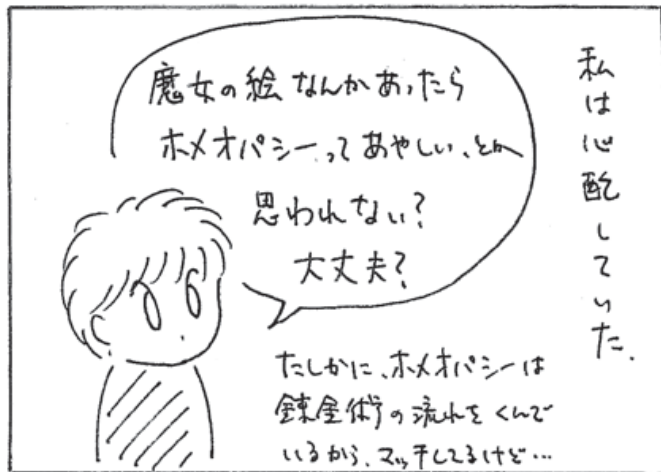 私は心酔していた.
魔女の絵なんかあったら
ホメオパシーってあやしい、とか
思われない?
大丈夫?
たしかに、ホメオパシーは
錬金術の流れをくんで
いるから、マッチしてるけど…